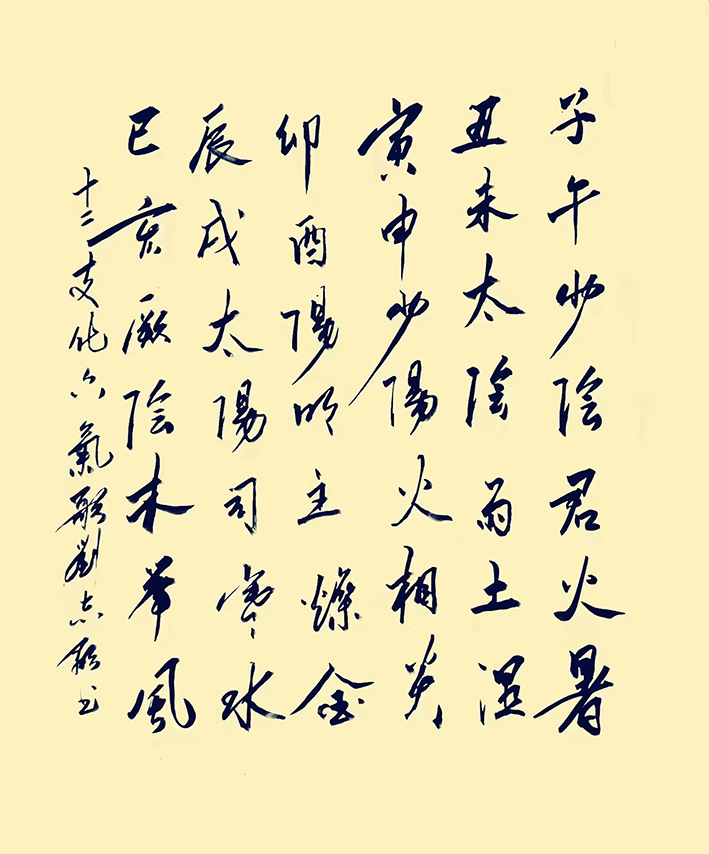 子午少陰君火暑
丑未太陰雨土湿
寅申少陽火相炎
卯酉陽明主燥金
辰戌太陽司寒水
巳亥厥陰木举風
十二支化六氣歌劉志